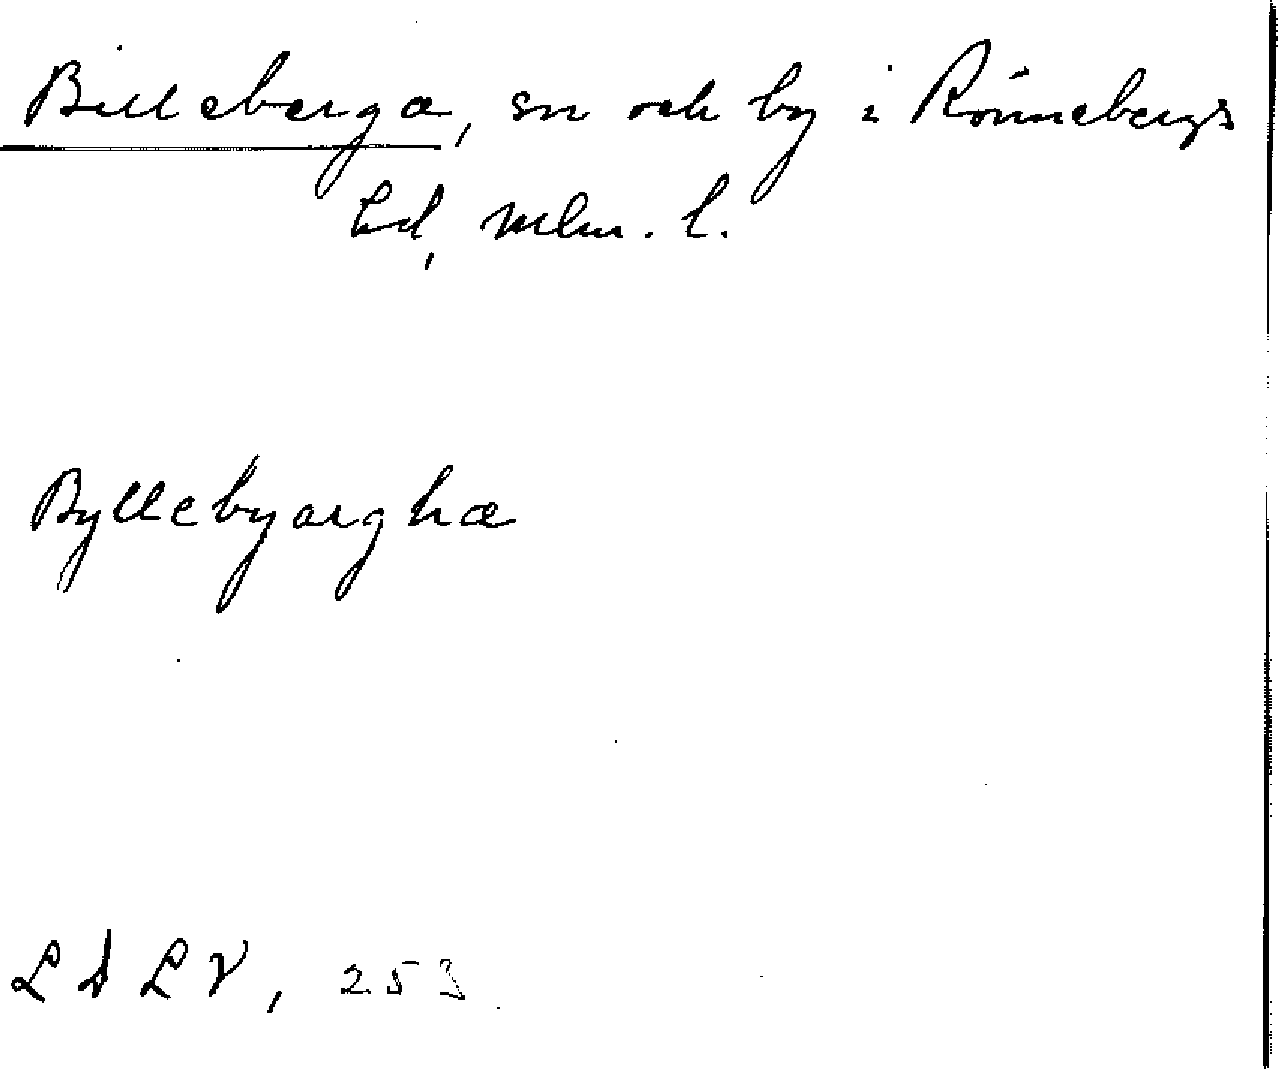 Billeberga, sn och by i Rönnebergs
hd, Mlm. l.
Byllebyarghæ
LÅLV, 253